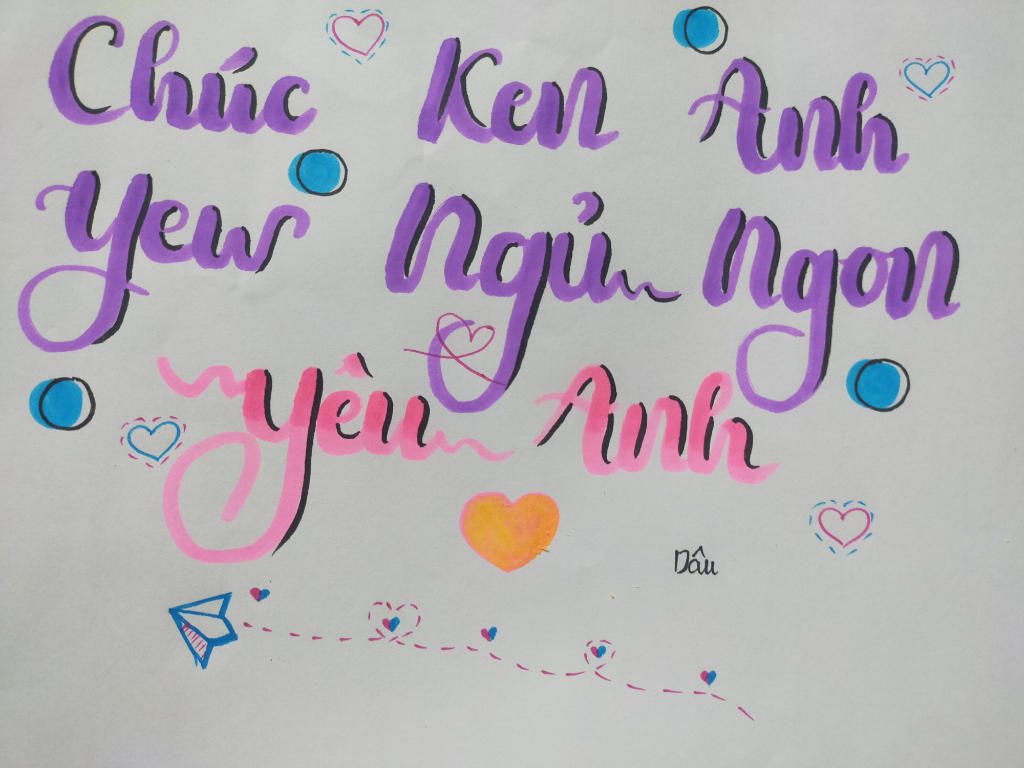 Chúc Ken Anh
Yew Ngủ Ngon
Yêu Anh
Dâu